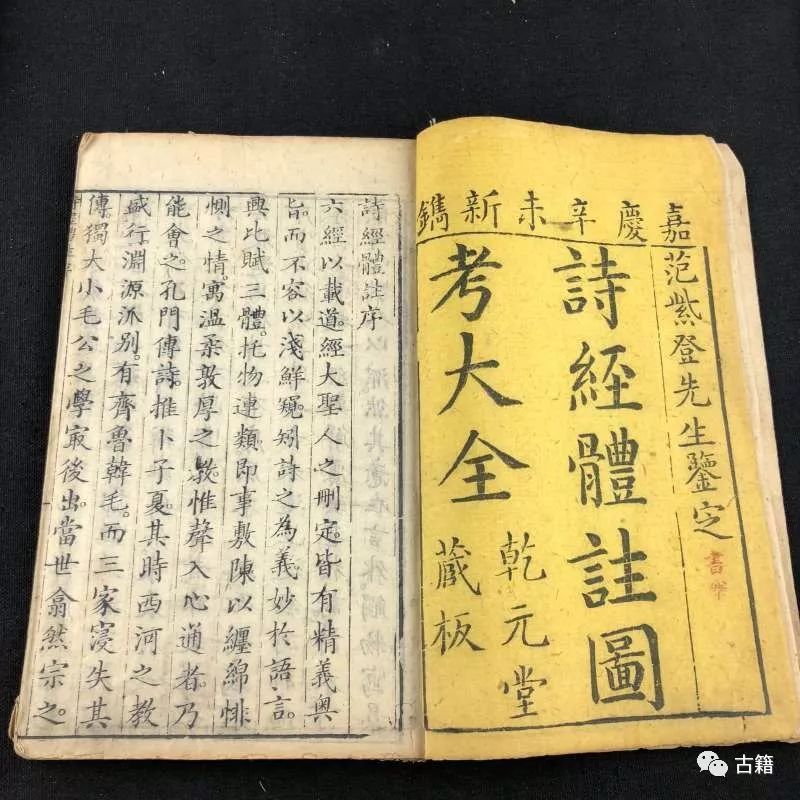 嘉慶辛未新鐫
范紫登先生鑒定
詩經體註圖
考大全
乾元堂
藏板
詩經體註序
六經以載道。經大聖人之刪定。皆有精義奧
旨。而不容以淺鮮窺。矧詩之為義。妙於語言。
興比賦三體。托物連類。即事敷陳。以纏綿悱
惻之情。寓溫柔敦厚之教。惟聲入心通者。乃
能會之。孔門傳詩。推卜子夏。其時西河之教
盛行。淵源派別。有齊魯韓毛。而三家寖失其
傳。獨大小毛公之學㝡後出。當世翕然宗之。
古籍